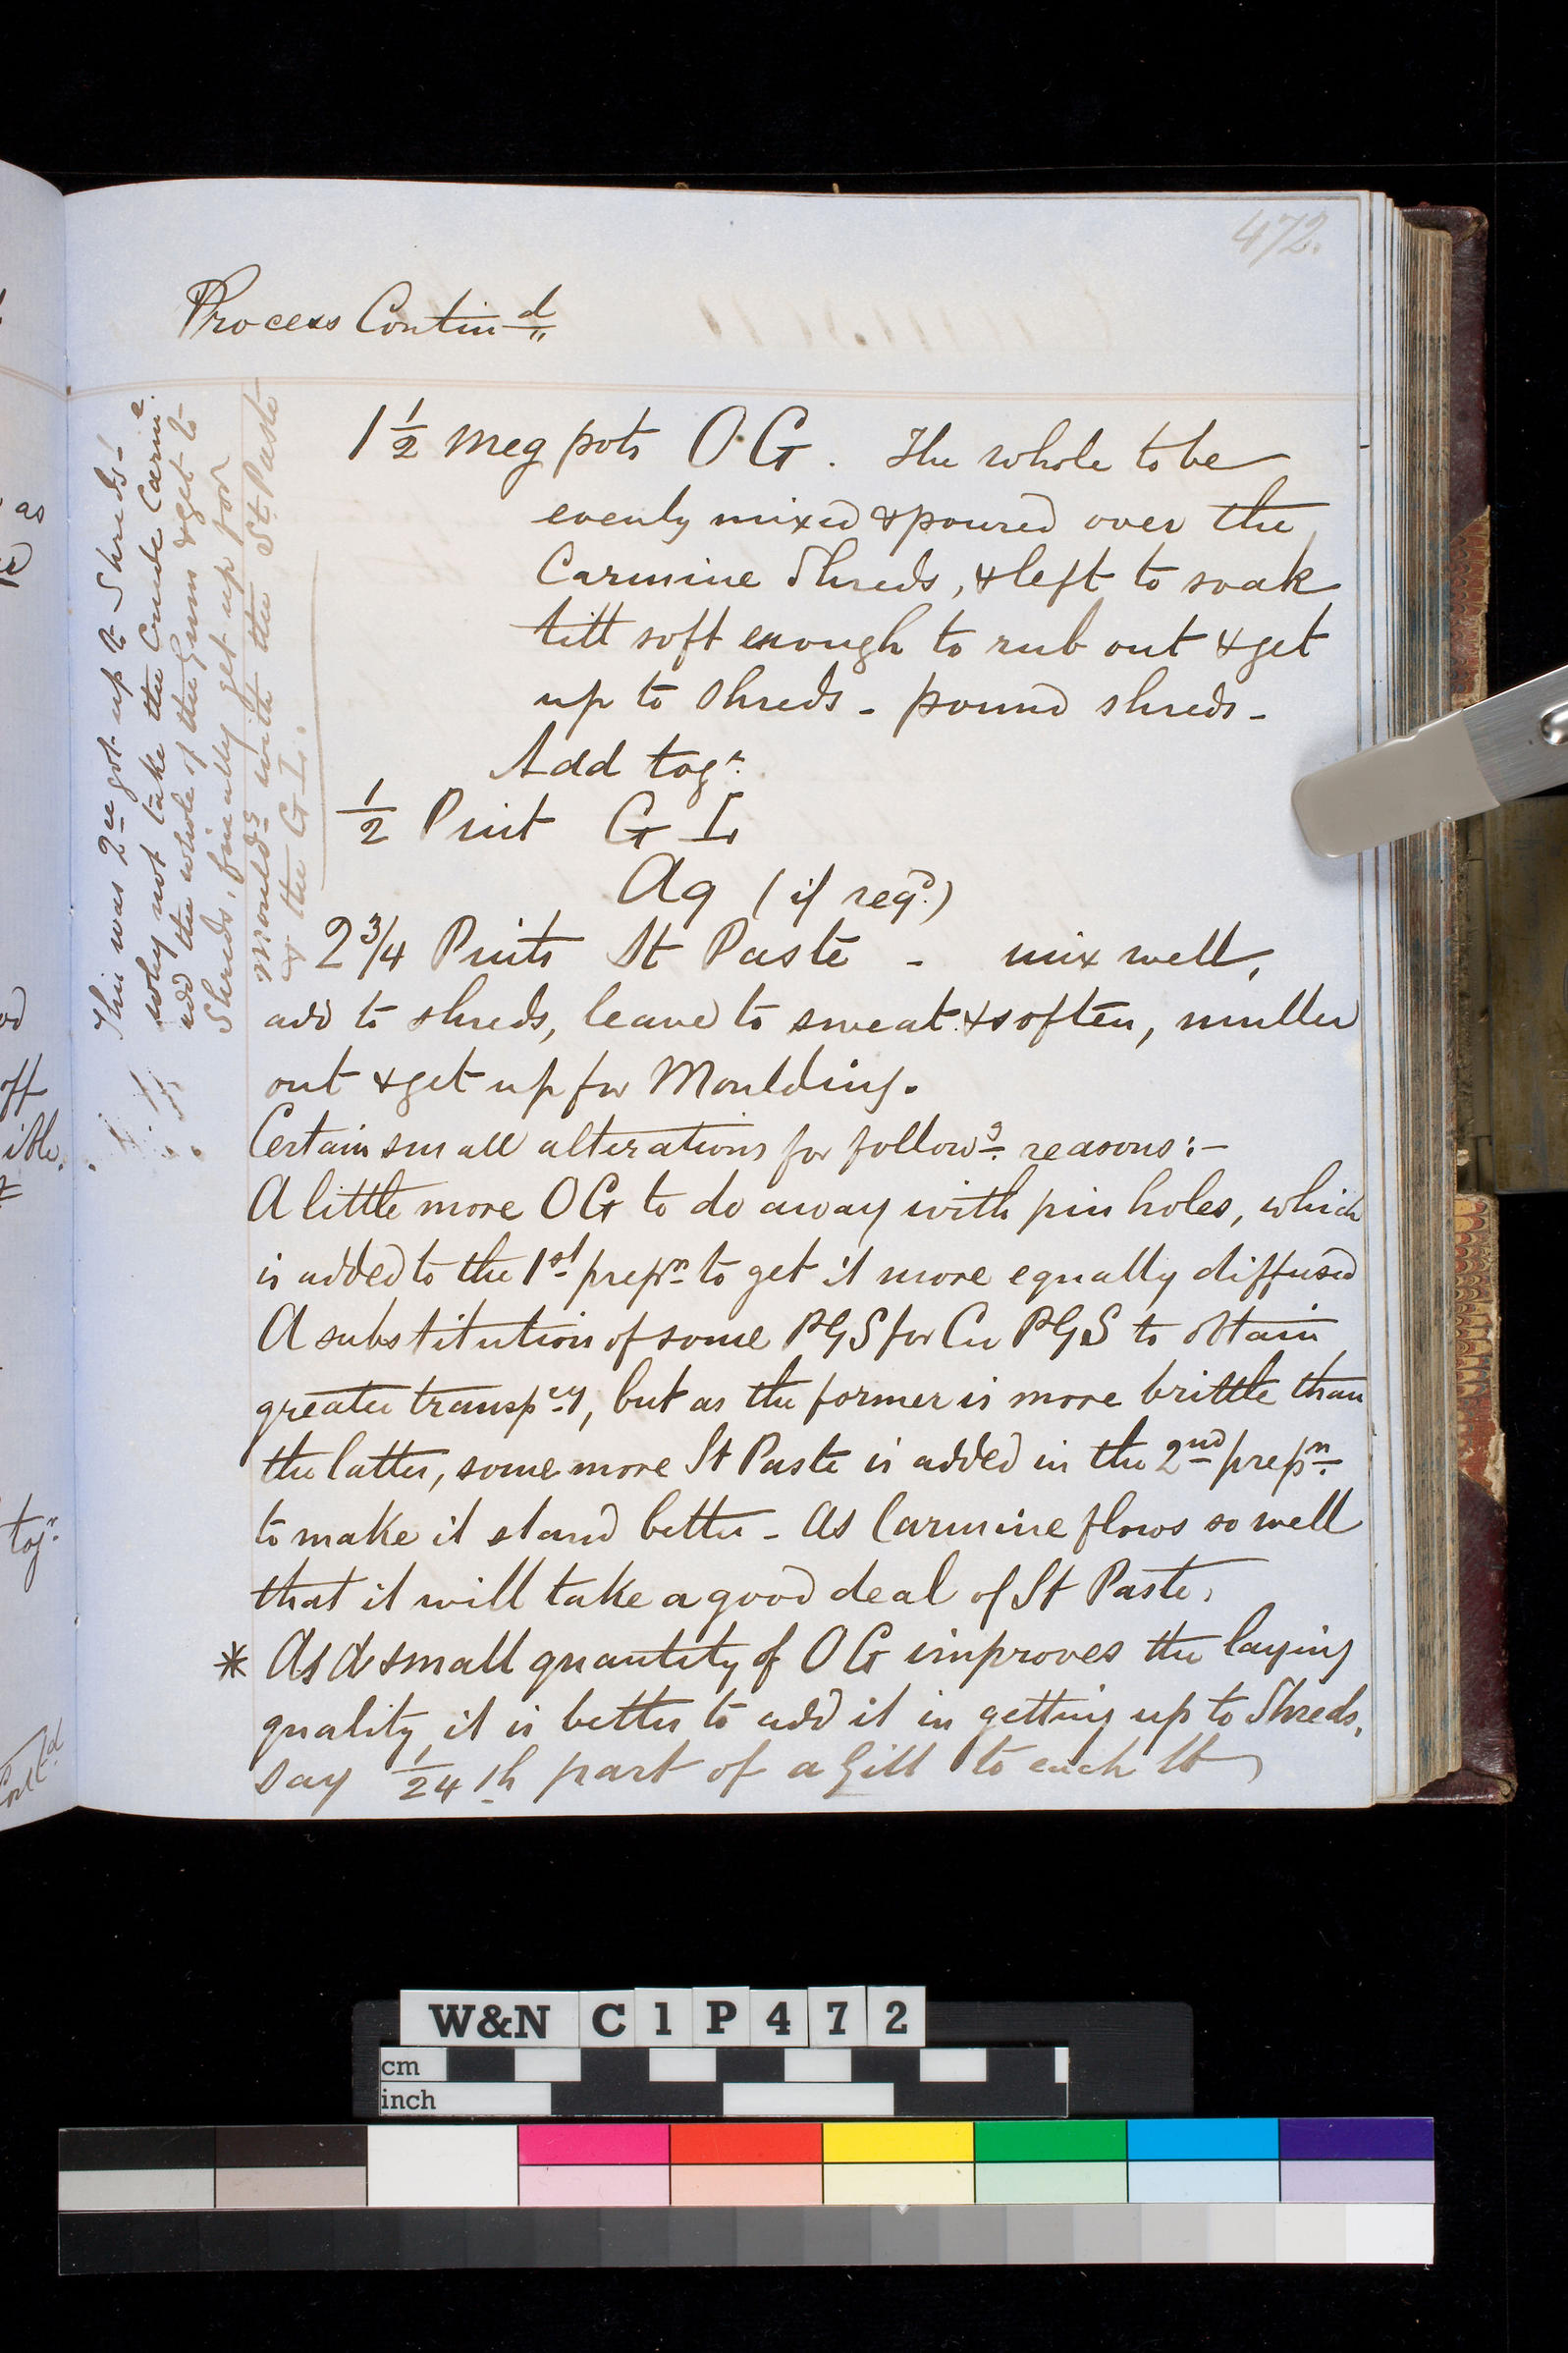 472.
Process Contin^d
1 1/2 Meg pots O.G. The whole to be
evenly mixed & poured over the
Carmine Shreds, & left to soak
till soft enough to rub out & get
up to shreds - pound shreds -
Add tog^r.
1/2 Pint G I.
Aq (if req^d.)
2 3/4 Pints St Paste - mix well,
add to shreds, leave to sweat & soften, muller
out & get up for Moulding.
Certain small alterations for follow^g reasons:-
A little more OG to do away with pin holes, which
is added to the 1^st prep^n to get it more equally diffused
A substitution of some PGS for Cu PGS to obtain
greater transp^cy, but as the former is more brittle than
the latter, some more St Paste is added in the 2^nd prep^n.
to make it stand better - As Carmine flows so well
that it will take a good deal of St Paste.
* As A small quantity of OG improves the laying
quality it is better to add it in getting up to Shreds,
say 1/24th part of a Gill to each lb
This was 2^ce got up to Shreds!
why not take the Crude Carm^e.
add the whole of the gum & get to
Shreds, finally get up for
Mould^g with the St Paste
& the G I.
as
off
ible.
tog^r.
Cont^d
W&N C1P472
cm
inch